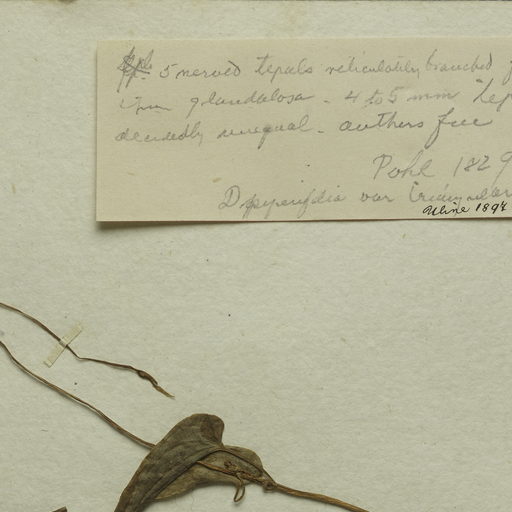 5 nerved tepals reticulately branched
glandulosa - 4 to 5 mm Tep
decidedly unequal - anthers free
Pohl 1829
D piperifolia var triangular
Uline 1894